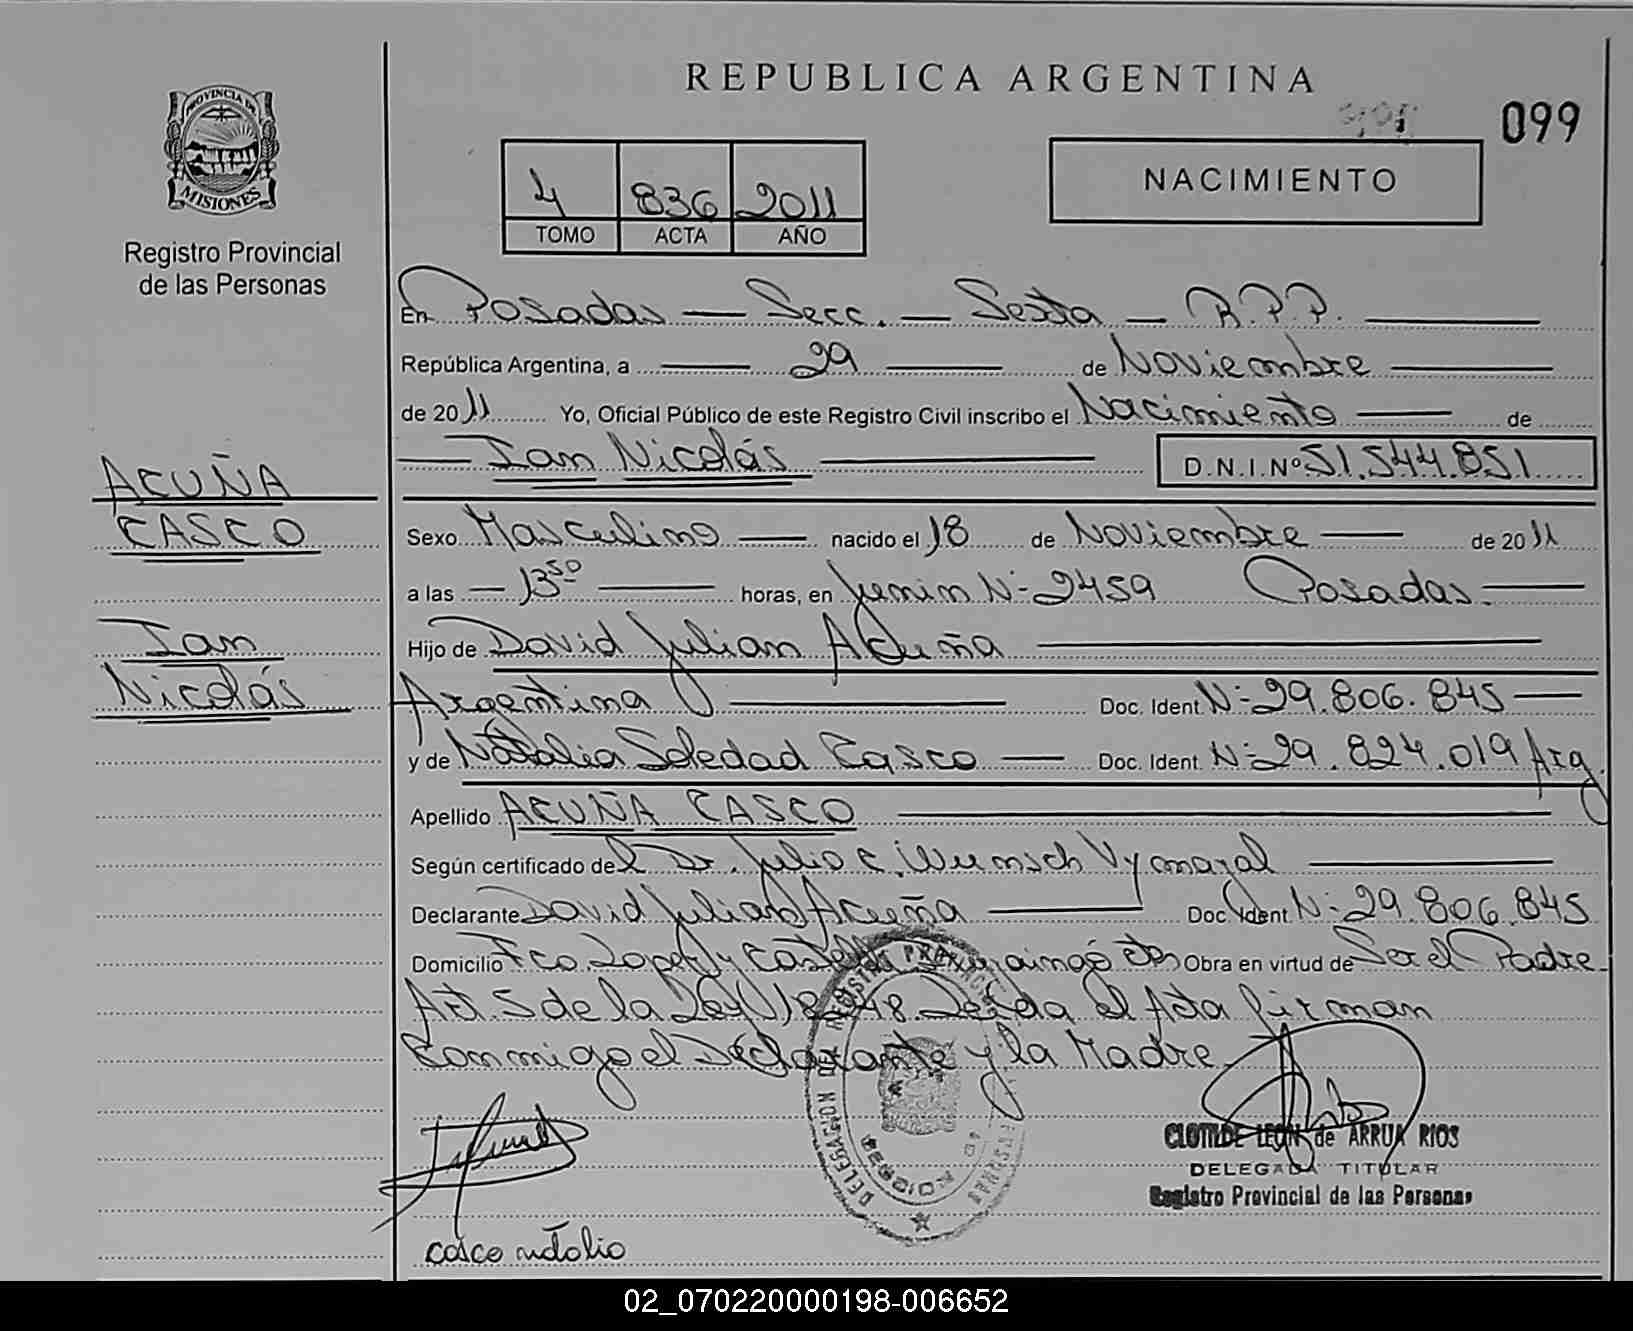 REPUBLICA ARGENTINA
099
PROVINCIA DE
MISIONES
Registro Provincial
de las Personas
4 836 2011
TOMO ACTA AÑO
NACIMIENTO
En Posadas — Secc. — Sexta — R.P.P. —
República Argentina, a — 29 — de Noviembre —
de 2011 Yo, Oficial Público de este Registro Civil inscribo el Nacimiento — de
— Ian Nicolás — D.N.I.Nº 51.544.851
ACUÑA
CASCO
Ian
Nicolás
Sexo Masculino — nacido el 18 de Noviembre — de 2011
a las — 13 50 — horas, en Junin Nº 2459 Posadas. —
Hijo de David Julian Acuña —
Argentina — Doc. Ident. Nº 29.806.845 —
y de Natalia Soledad Casco — Doc. Ident. Nº 29.824.019 Arg.
Apellido ACUÑA CASCO —
Según certificado del Dr. Julio C. Wunsch Vymazal —
Declarante David Julian Acuña — Doc. Ident. Nº 29.806.845
Domicilio Fco. Lopez y Obra en virtud de Ser el Padre
Art. 5 de la Ley 18248. Leida el Acta firman
Conmigo el Declarante y la Madre.
DELEGACION DEL REGISTRO PROVINCIAL PERSONAS
SECCION
CLOTILDE LEON de ARRUA RIOS
DELEGADA TITULAR
Registro Provincial de las Personas
casco natalia
02_070220000198-006652